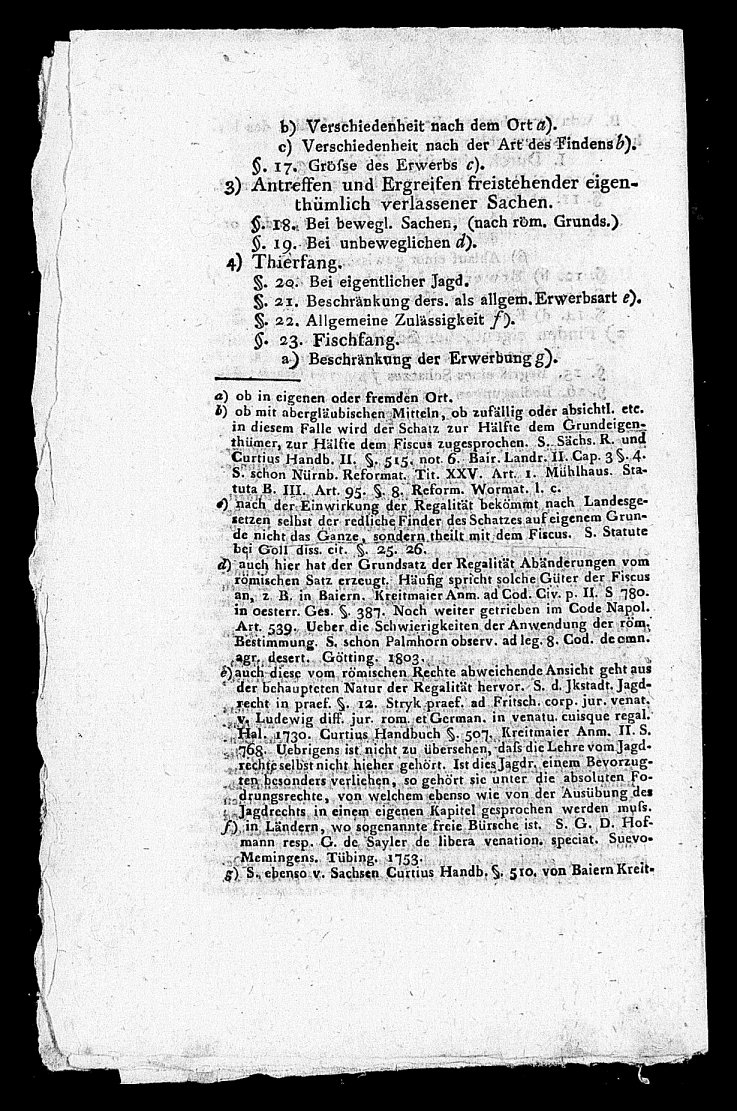 b) Verschiedenheit nach dem Ort a).
c) Verschiedenheit nach der Art des Findens b).
§. 17. Gröſse des Erwerbs c).
3) Antreffen und Ergreifen freistehender eigen-
thümlich verlassener Sachen.
§. 18. Bei bewegl. Sachen, (nach röm. Grunds.)
§. 19. Bei unbeweglichen d).
4) Thierfang.
§. 20. Bei eigentlicher Jagd.
§. 21. Beschränkung ders. als allgem. Erwerbsart e).
§. 22. Allgemeine Zulässigkeit f).
§. 23. Fischfang.
a) Beschränkung der Erwerbung g).
a) ob in eigenen oder fremden Ort.
b) ob mit abergläubischen Mitteln, ob zufällig oder absichtl. etc.
in diesem Falle wird der Schatz zur Hälfte dem Grundeigen-
thümer, zur Hälfte dem Fiscus zugesprochen. S. Sächs. R. und
Curtius Handb. II. §. 515. not. 6. Bair. Landr. II. Cap. 3 §. 4.
S. schon Nürnb. Reformat. Tit. XXV. Art. 1. Mühlhaus. Sta-
tuta B. III. Art. 95. §. 8. Reform. Wormat. l. c.
c) nach der Einwirkung der Regalität bekömmt nach Landesge-
setzen selbst der redliche Finder des Schatzes auf eigenem Grun-
de nicht das Ganze, sondern theilt mit dem Fiscus. S. Statute
bei Göll diss. cit. §. 25. 26.
d) auch hier hat der Grundsatz der Regalität Abänderungen vom
römischen Satz erzeugt. Häufig spricht solche Güter der Fiscus
an, z. B. in Baiern. Kreitmaier Anm. ad Cod. Civ. p. II. S 780.
in oesterr. Ges. §. 387. Noch weiter getrieben im Code Napol.
Art. 539. Ueber die Schwierigkeiten der Anwendung der röm.
Bestimmung. S. schon Palmhorn observ. ad leg. 8. Cod. de omn.
agr. desert. Götting. 1803.
e) auch diese vom römischen Rechte abweichende Ansicht geht aus
der behaupteten Natur der Regalität hervor. S. d. Jkstadt. Jagd-
recht in praef. §. 12. Stryk praef. ad Fritsch. corp. jur. venat.
v. Ludewig diff. jur. rom. et German. in venatu. cuisque regal.
Hal. 1730. Curtius Handbuch §. 507. Kreitmaier Anm. II. S.
768. Uebrigens ist nicht zu übersehen, daſs die Lehre vom Jagd-
rechte selbst nicht hieher gehört. Ist dies Jagdr. einem Bevorzug-
ten besonders verliehen, so gehört sie unter die absoluten Fo-
drungsrechte, von welchem ebenso wie von der Ausübung des
Jagdrechts in einem eigenen Kapitel gesprochen werden muſs.
f) in Ländern, wo sogenannte freie Bürsche ist. S. G. D. Hof-
mann resp. G. de Sayler de libera venation. speciat. Suevo-
Memingens. Tübing. 1753.
g) S. ebenso v. Sachsen Curtius Handb. §. 510. von Baiern Kreit-